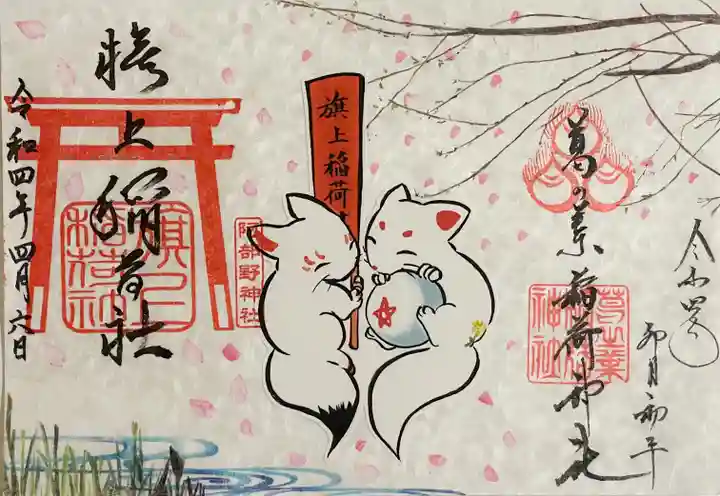 令和四年卯月初午
葛の葉稲荷神社
葛之葉
稲荷
神社
旗上稲荷
阿部野神社
旗上稲荷社
旗上
稲荷社
令和四年四月六日